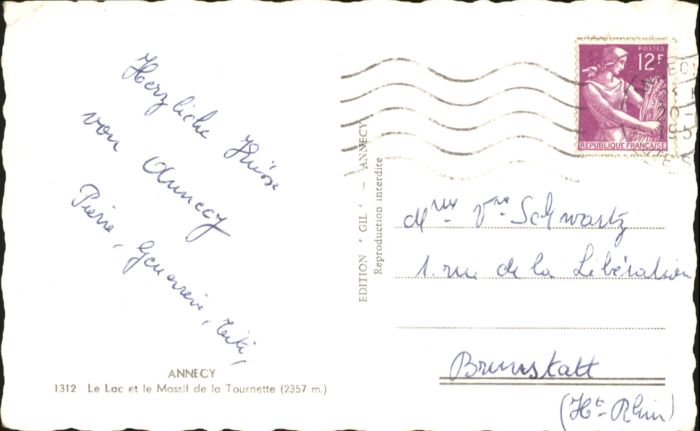 Herzliche Grüsse
von Annecy
Pierre, Geneviève, Kiki,
ANNECY
1312 Le Lac et le Massif de la Tournette (2357 m.)
EDITION "GIL" - ANNECY
Reproduction interdite
POSTES
12F
REPUBLIQUE FRANÇAISE
Mme Vve Schwartz
1. rue de la Libération
Brunstatt
(Ht-Rhin)